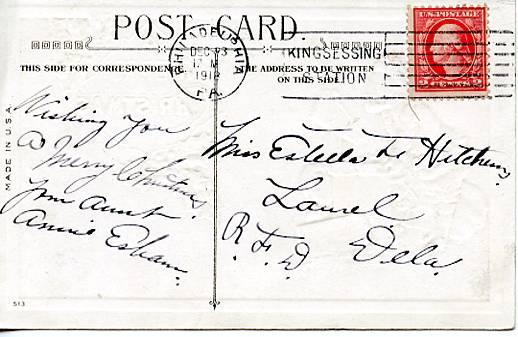 POST CARD.
THIS SIDE FOR CORRESPONDENCE
THE ADDRESS TO BE WRITTEN
ON THIS SIDE
PHILADELPHIA
DEC 23
12 M
1918
PA.
KINGSESSING
STATION
U.S. POSTAGE
2 CENTS 2
MADE IN U.S.A.
Wishing you
a Merry Christmas.
from aunt
Annie Esham.
Miss Estella Hitchens,
Laurel
R. F. D. Dela.
513